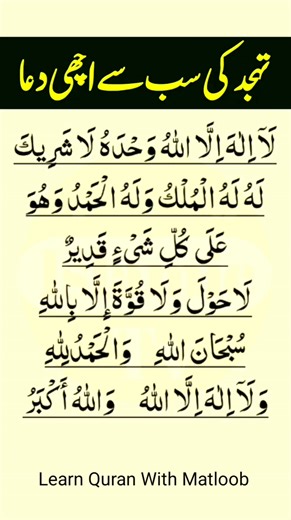 تہجد کی سب سے اچھی دعا
لَآ اِلٰهَ اِلَّا اللهُ وَحْدَهُ لَا شَرِيكَ
لَهُ لَهُ الْمُلْكُ وَلَهُ الْحَمْدُ وَهُوَ
عَلَى كُلِّ شَيْءٍ قَدِيرٌ
لَا حَوْلَ وَلَا قُوَّةَ إِلَّا بِاللهِ
سُبْحَانَ اللهِ وَالْحَمْدُ لِلهِ
وَلَآ اِلٰهَ اِلَّا اللهُ وَاللهُ أَكْبَرُ
Learn Quran With Matloob